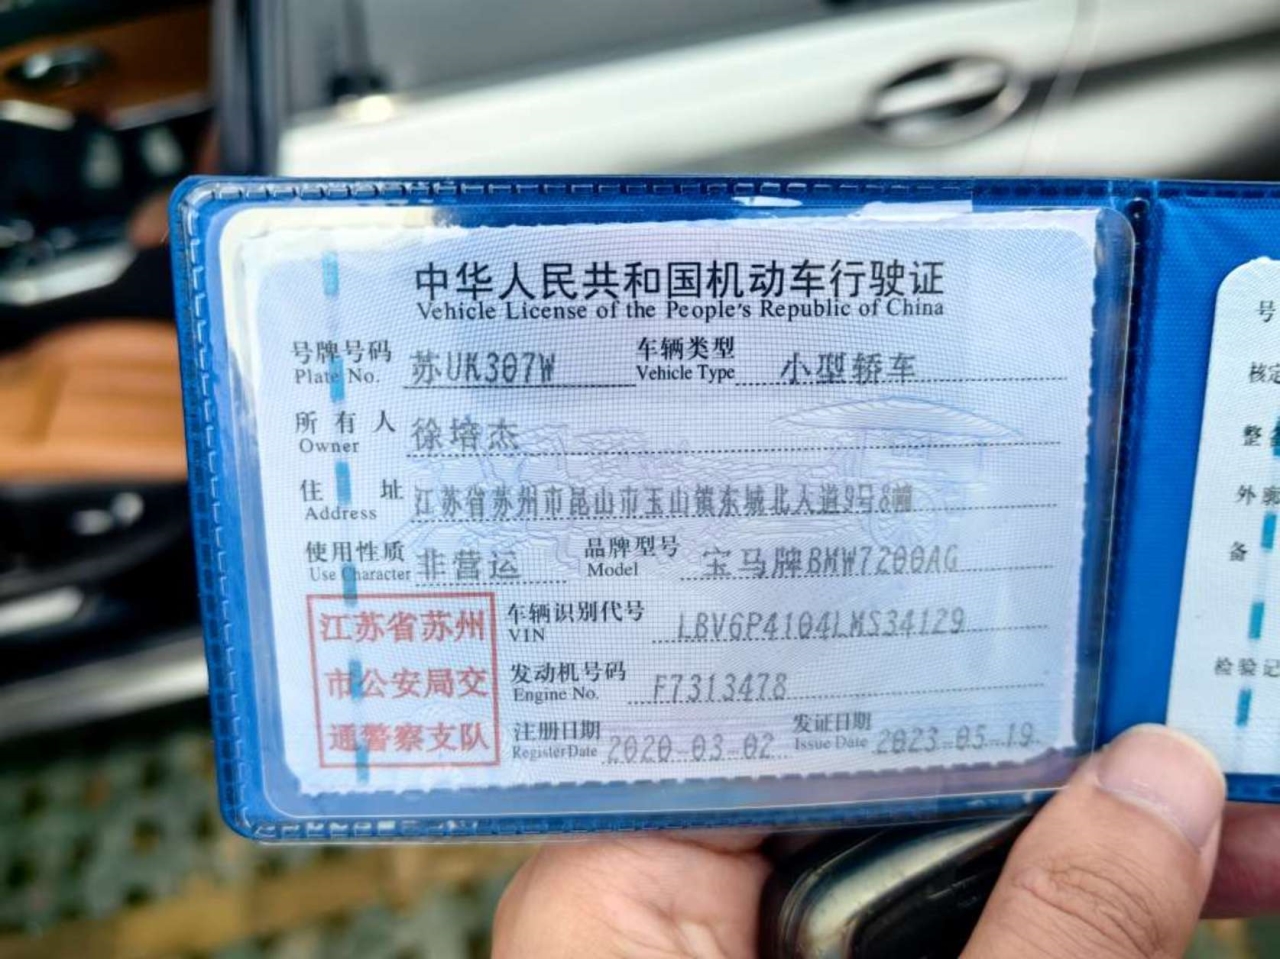 中华人民共和国机动车行驶证
Vehicle License of the People's Republic of China
号牌号码 苏UK307W 车辆类型 小型轿车
Plate No. Vehicle Type
所有人 徐培杰
Owner
住址 江苏省苏州市昆山市玉山镇东城北人道9号8幢
Address
使用性质 非营运 品牌型号 宝马牌BMW7200AG
Use Character Model
江苏省苏州
市公安局交
通警察支队
车辆识别代号 LBV6P4104LMS34129
VIN
发动机号码 F7313478
Engine No.
注册日期 2020-03-02 发证日期 2023-05-19
Register Date Issue Date
号
核定
整
外廓
备
检验记